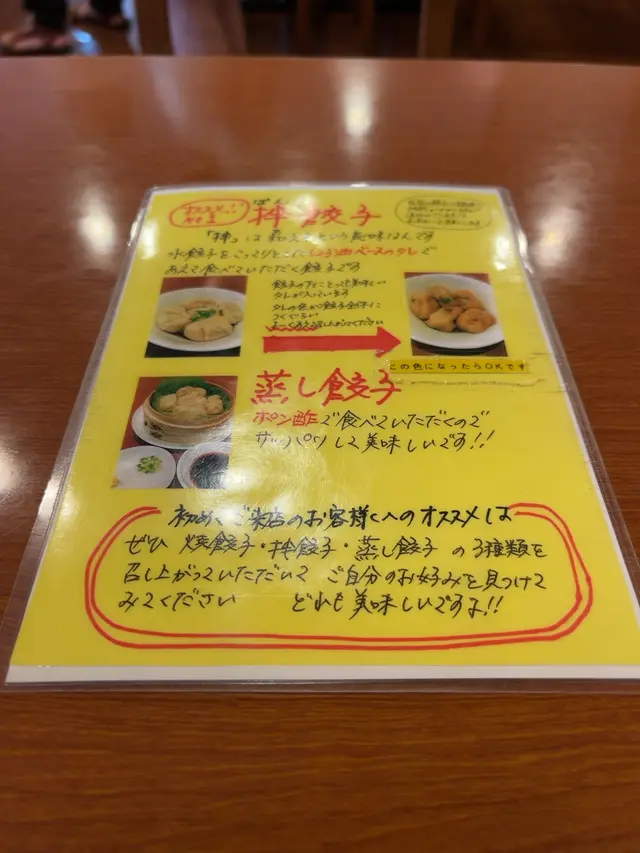 オススメ!!
ばん
拌餃子
「拌」は和えるという意味なんです
水餃子をこってりとした
ベースのタレで
あえて食べていただく餃子です
餃子の下にとっても美味しい
タレが入っています
タレの色が餃子全体に
つくぐらい
召し上がりください
この色になったらOKです
蒸し餃子
ポン酢で食べていただくので
サッパリして美味しいです!!
初めてご来店のお客様へのオススメは
ぜひ 焼餃子・拌餃子・蒸し餃子 の3種類を
召し上がっていただいて ご自分のお好みを見つけて
みてください どれも美味しいですよ!!